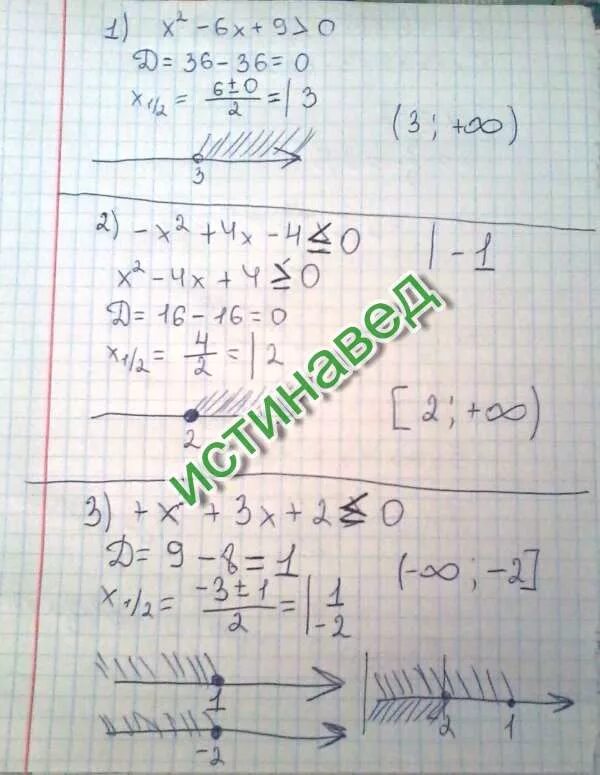 1) x² - 6x + 9 > 0
D = 36 - 36 = 0
x1/2 = (6±0)/2 = | 3
(3; +∞)
3
2) -x² + 4x - 4 ≤ 0 | -1
x² - 4x + 4 ≥ 0
D = 16 - 16 = 0
x1/2 = 4/2 = | 2
[2; +∞)
2
истинавед
3) +x² + 3x + 2 ≤ 0
D = 9 - 8 = 1
(-∞; -2]
x1/2 = (-3±1)/2 = | 1
-2
1
-2
2 1